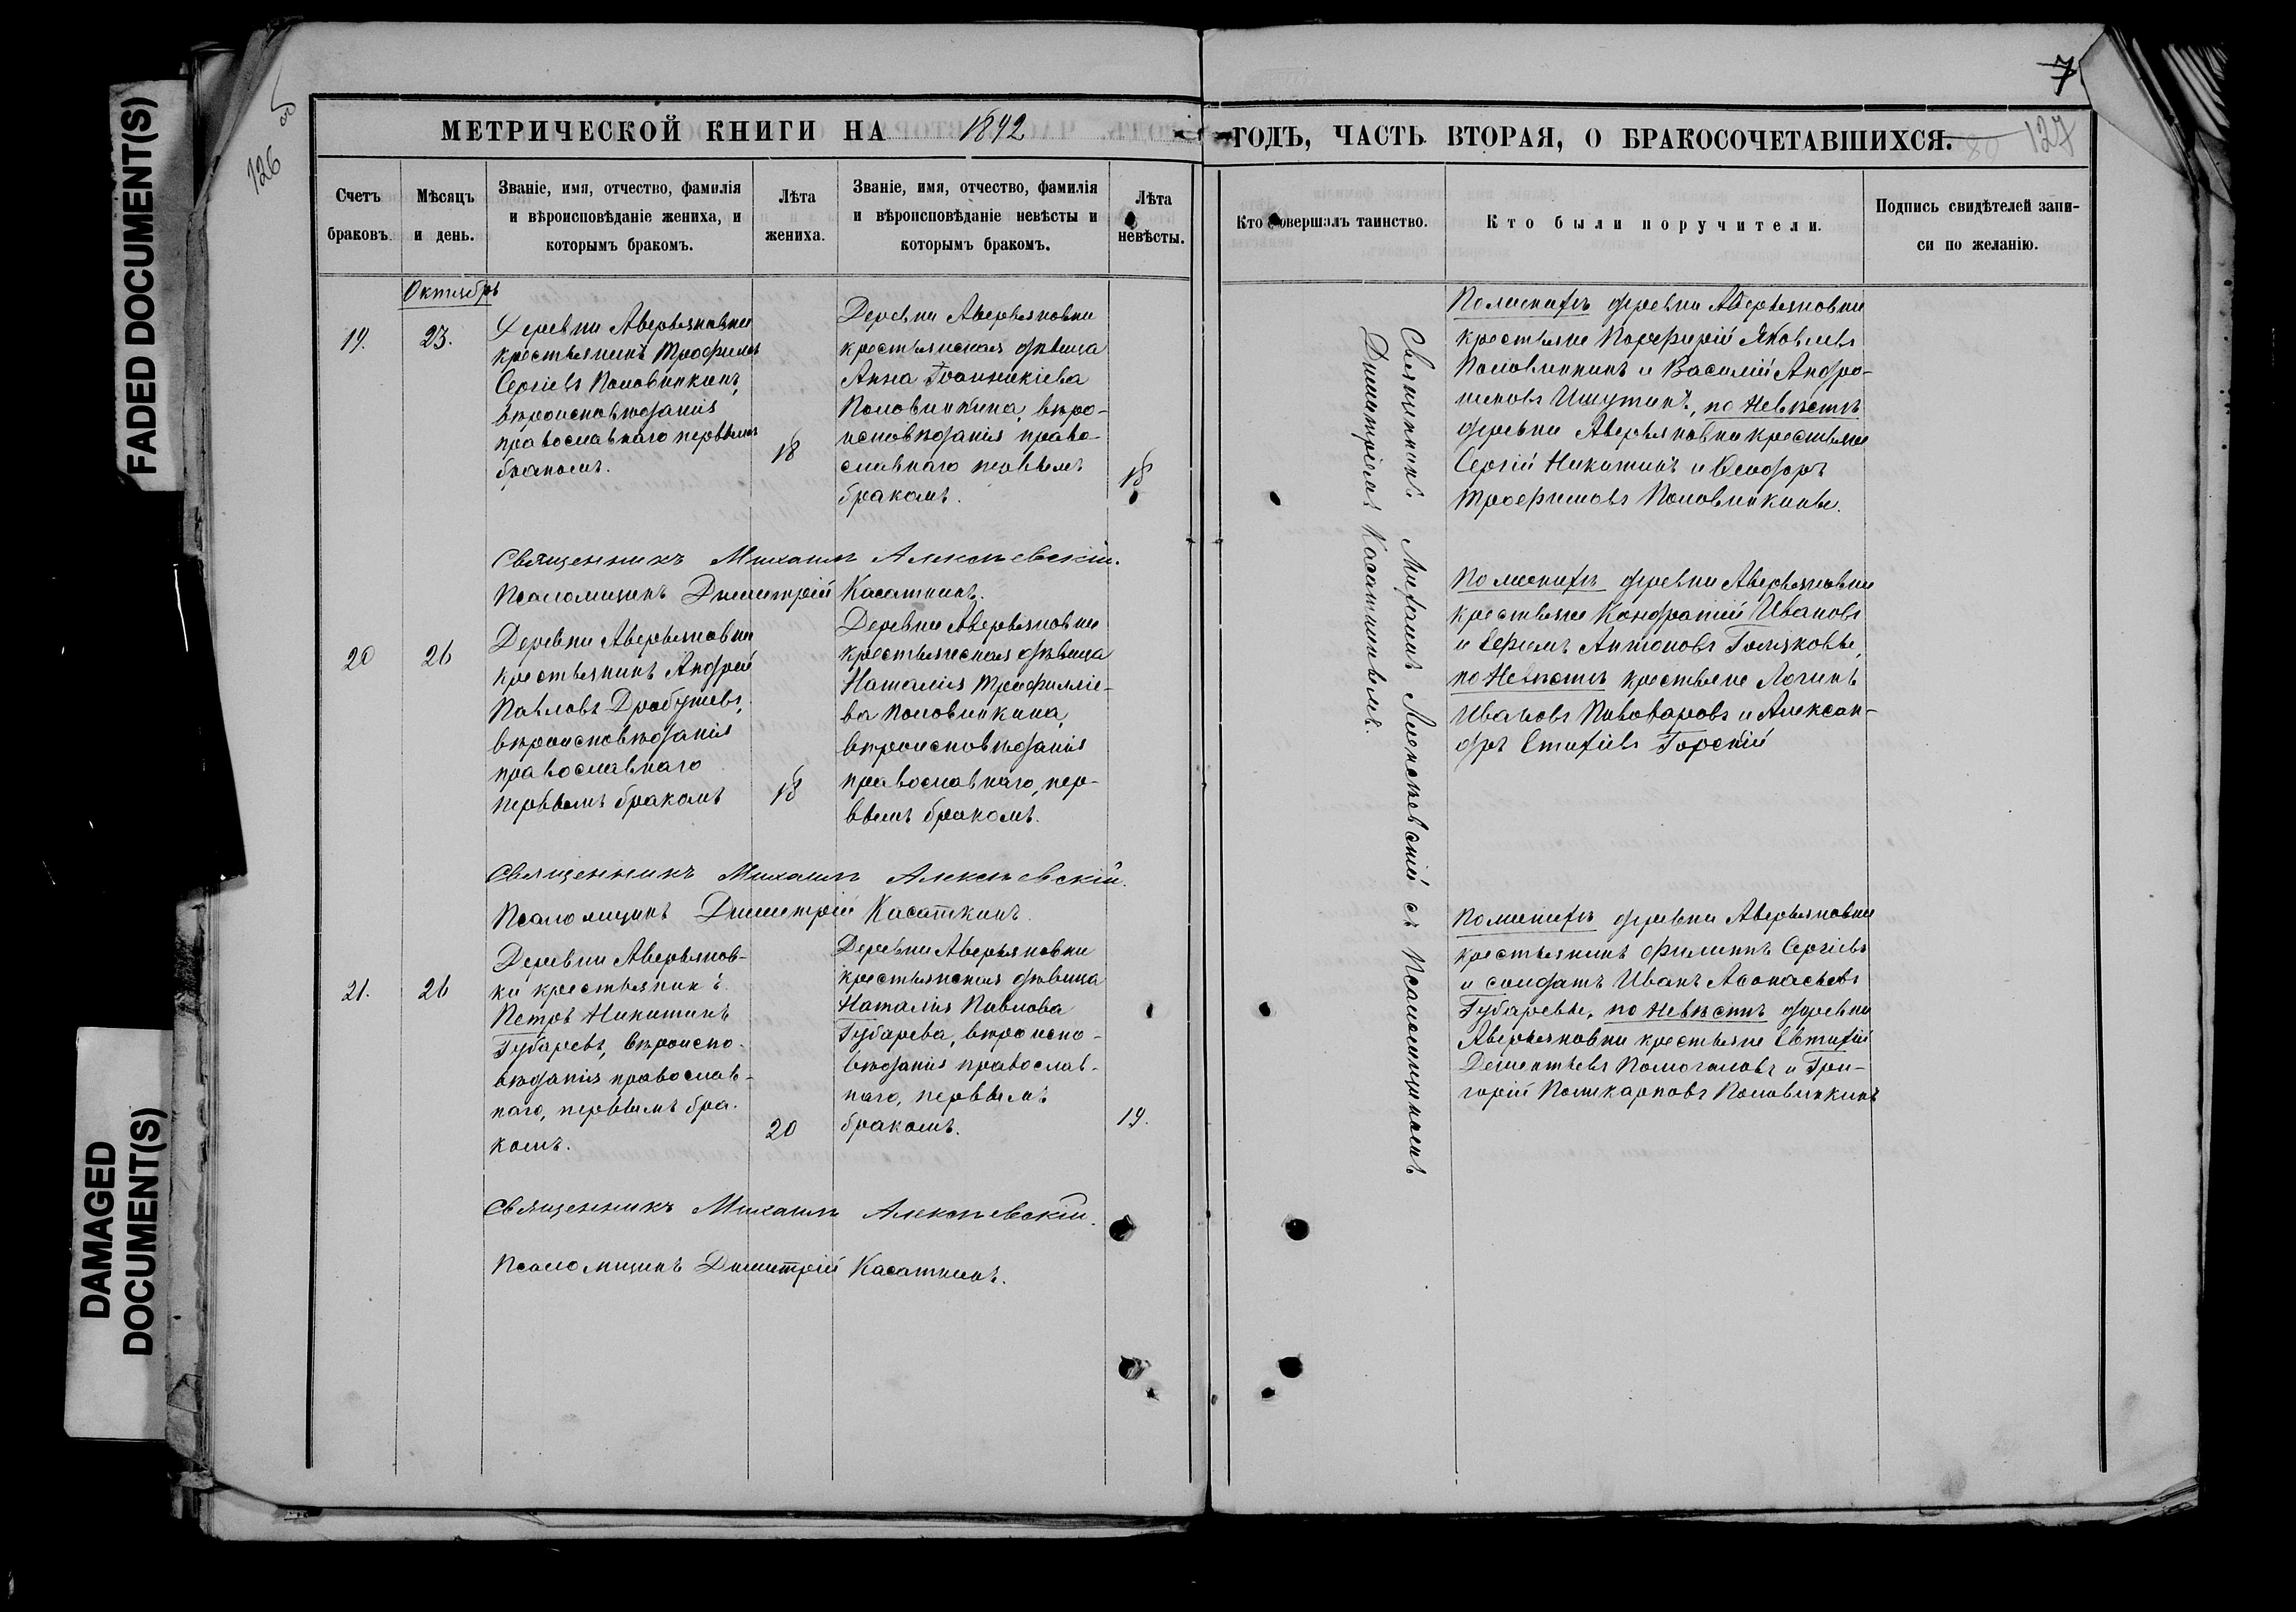 FADED DOCUMENT(S)
DAMAGED
DOCUMENT(S)
126
7
127
МЕТРИЧЕСКОЙ КНИГИ НА 1892
ГОДЪ, ЧАСТЬ ВТОРАЯ, О БРАКОСОЧЕТАВШИХСЯ.
Счетъ
браковъ.
Мѣсяцъ
и день.
Званіе, имя, отчество, фамилія
и вѣроисповѣданіе жениха, и
которымъ бракомъ.
Лѣта
жениха.
Званіе, имя, отчество, фамилія
и вѣроисповѣданіе невѣсты и
которымъ бракомъ.
Лѣта
невѣсты.
Кто совершалъ таинство.
Кто были поручители.
Подпись свидѣтелей запи-
си по желанію.
Октябрь
19.
23.
Деревни Аверьяновки
крестьянинъ Трофимъ
Сергіевъ Половинкинъ,
вѣроисповѣданія
православнаго первымъ
бракомъ.
18
Деревни Аверьяновки
крестьянская дѣвица
Анна Іоанникіева
Половинкина, вѣро-
исповѣданія право-
славнаго первымъ
бракомъ.
18
Священникъ Михаилъ Алексѣевскій.
Псаломщикъ Димитрій Касаткинъ.
20
26
Деревни Аверьяновки
крестьянинъ Андрей
Павловъ Дробушевъ,
вѣроисповѣданія
православнаго
первымъ бракомъ
18
Деревни Аверьяновки
крестьянская дѣвица
Наталія Трофиміе-
ва Половинкина,
вѣроисповѣданія
православнаго, пер-
вымъ бракомъ.
Священникъ Михаилъ Алексѣевскій.
Псаломщикъ Димитрій Касаткинъ.
21.
26
Деревни Аверьянов-
ки крестьянинъ
Петръ Никитинъ
Губаревъ, вѣроиспо-
вѣданія православ-
наго, первымъ бра-
комъ.
20
Деревни Аверьяновки
крестьянская дѣвица
Наталія Павлова
Губарева, вѣроиспо-
вѣданія православ-
наго, первымъ
бракомъ.
19.
Священникъ Михаилъ Алексѣевскій.
Псаломщикъ Димитрій Касаткинъ.
Священникъ Михаилъ Алексѣевскій съ Псаломщикомъ
Димитріемъ Касаткинымъ.
По женихѣ деревни Аверьяновки
крестьяне Порфирій Яковлевъ
Половинкинъ и Василій Андро-
никовъ Ишутинъ, по невѣстѣ
деревни Аверьяновки крестьяне
Сергій Никитинъ и Ѳеодоръ
Трофимовъ Половинкины.
По женихѣ деревни Аверьяновки
крестьяне Кондратій Ивановъ
и Ефимъ Антоновъ Голяковы,
по невѣстѣ крестьяне Логинъ
Ивановъ Пивоваровъ и Алексан-
дръ Горскій
По женихѣ деревни Аверьяновки
крестьянинъ Филиппъ Сергіевъ
и солдатъ Иванъ Аѳонасьевъ
Губаревы, по невѣстѣ деревни
Аверьяновки крестьяне Евтихій
Дементьевъ Помогаловъ и Гри-
горій Поликарповъ Половинкинъ